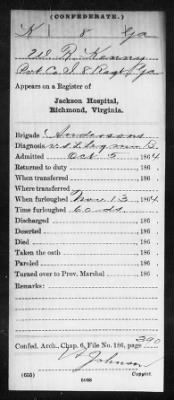 (CONFEDERATE.)
K 8 Ga
W R Kenny
Pvt Co I 8 Regt Ga
Appears on a Register of
Jackson Hospital,
Richmond, Virginia.
Brigade Andersons
Diagnosis v.s. l. leg
Admitted Oct 5, 1864
Returned to duty , 186
When transferred , 186
Where transferred
When furloughed Nov. 13, 1864
Time furloughed 60 ds
Discharged , 186
Deserted , 186
Died , 186
Taken the oath , 186
Paroled , 186
Turned over to Prov. Marshal , 186
Confed. Arch., Chap. 6, File No. 186, page 390
Johnson
(635) Copyist.